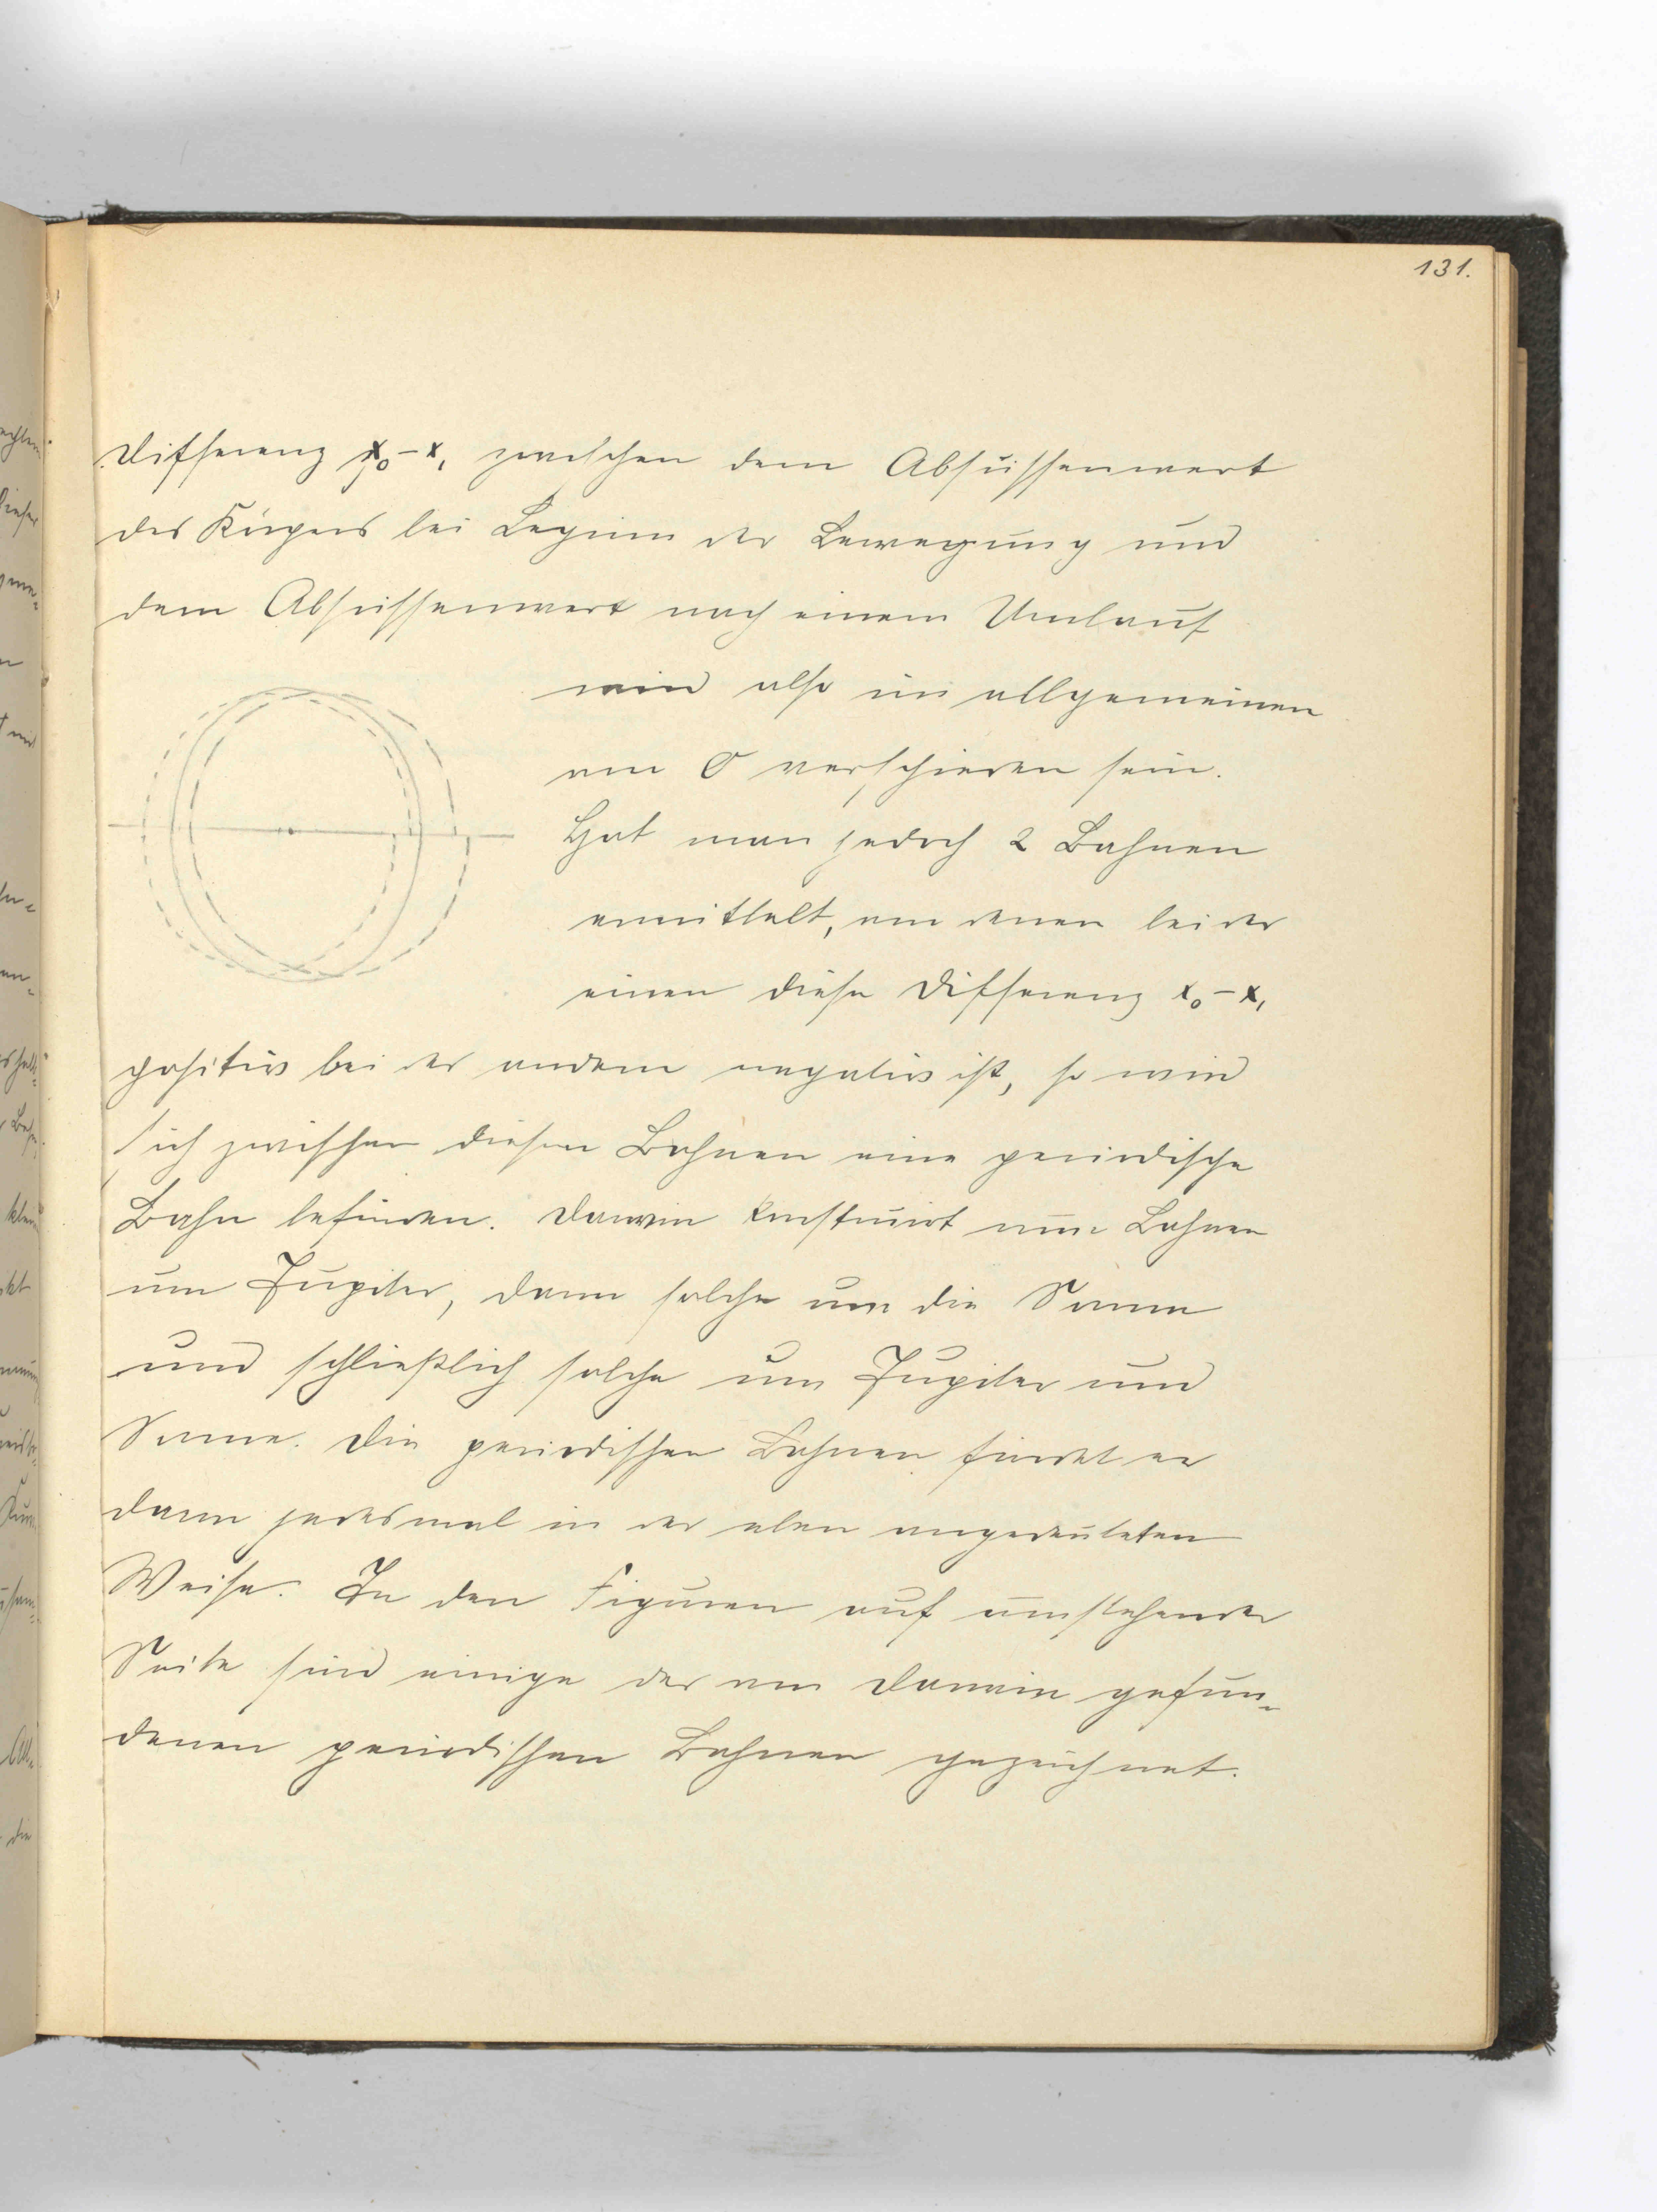 131.
Differenz x₀-x₁ zwischen dem Abscissenwert
des Körpers bei Beginn der Bewegung und
dem Abscissenwert nach einem Umlauf
wird also im allgemeinen
von 0 verschieden sein.
Hat man jedoch 2 Bahnen
ermittelt, von denen bei der
einen diese Differenz x₀-x₁
positiv bei der andern negativ ist, so wird
sich zwischen diesen Bahnen eine periodische
Bahn befinden. Darwin konstruirt nun Bahnen
um Jupiter, dann solche um die Sonne
und schließlich solche um Jupiter und
Sonne. Die periodischen Bahnen findet er
dann jedesmal in der oben angedeuteten
Weise. In den Figuren auf umstehender
Seite sind einige der von Darwin gefun-
denen periodischen Bahnen gezeichnet.